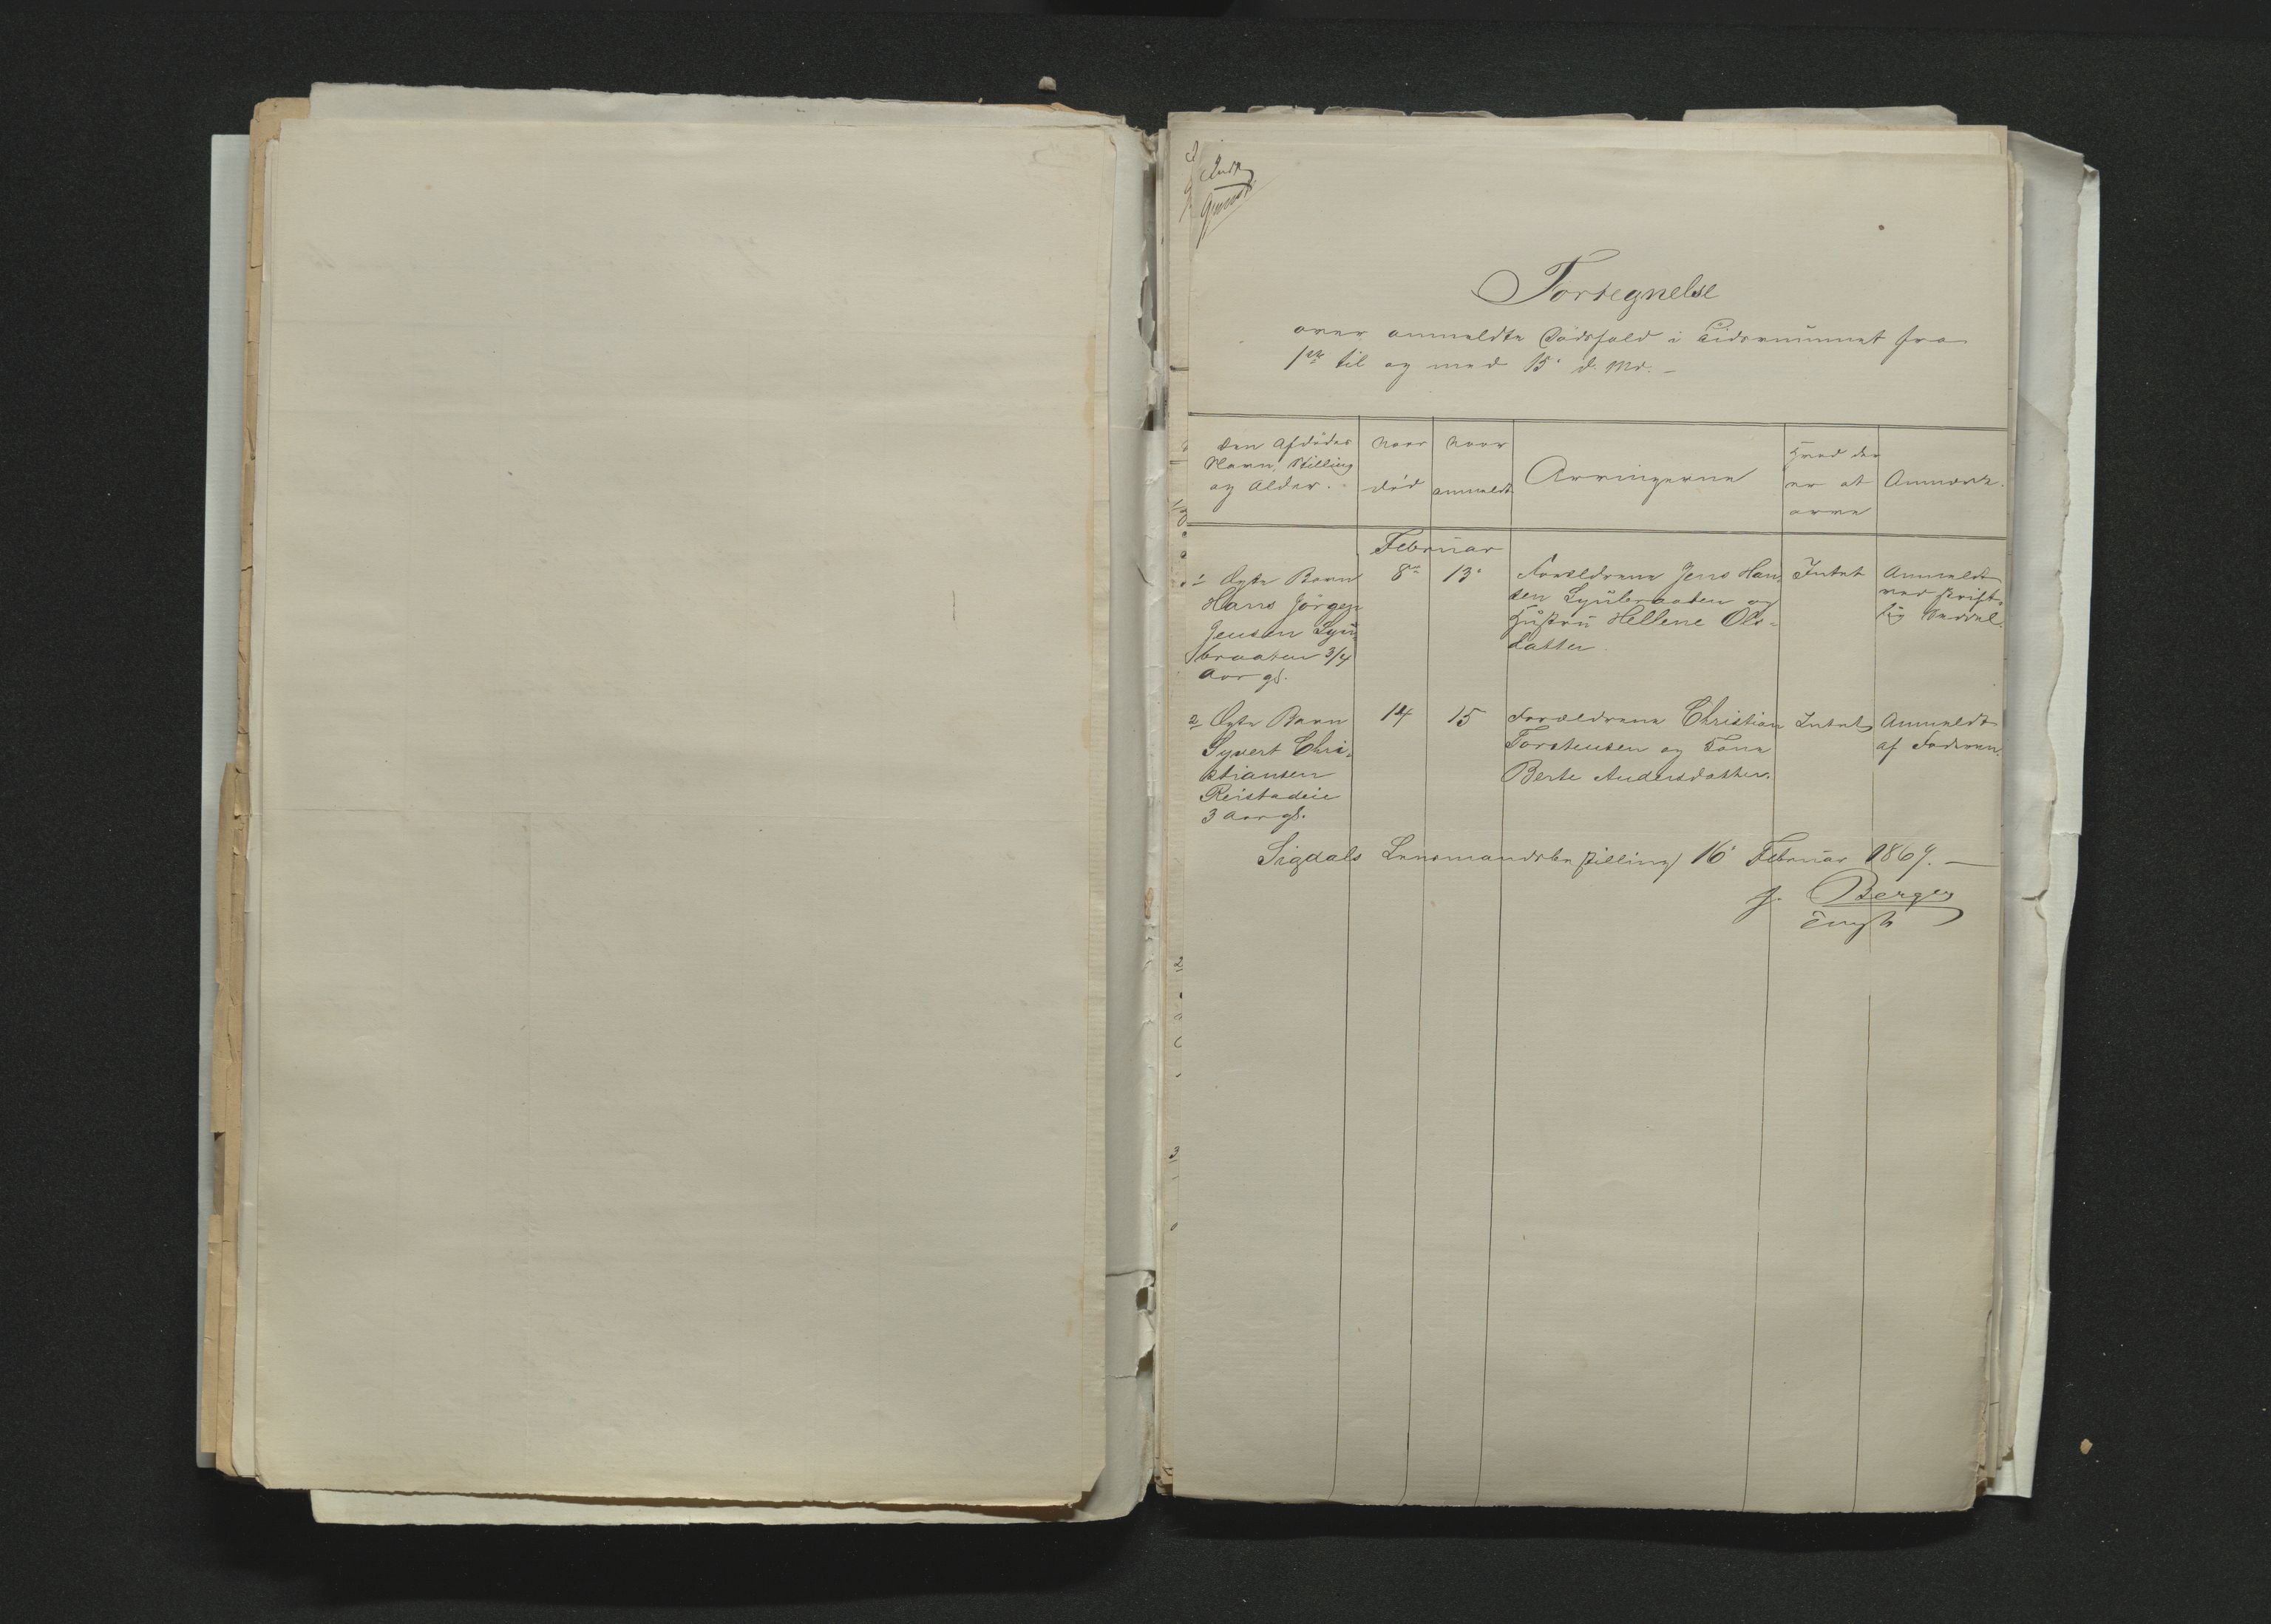 Fortegnelse
over anmeldte Dödsfald i Tidsrummet fra
1ste til og med 15de d. Md. –
Den Afdödes
Navn, Stilling
og Alder.
Naar
död
Naar
anmeldt
Arvingerne
Hvad der
er at
arve
Anmærk.
Februar
1 Ægte Barn
Hans Jörgen
Jensen Lyu-
braaten 3/4
Aar gl.
8de
13de
Forældrene Jens Han-
sen Lyubraaten og
Hustru Hellene Ols-
datter
Intet
Anmeldt
ved skrift-
lig Seddel.
2 Ægte Barn
Syvert Chri-
stiansen
Reistadeie
3 Aar gl.
14
15
Forældrene Christian
Torstensen og Kone
Berte Andersdatter.
Intet
Anmeldt
af Faderen.
Sigdals Lensmandsbestilling 16de Februar 1869. –
J. Berger